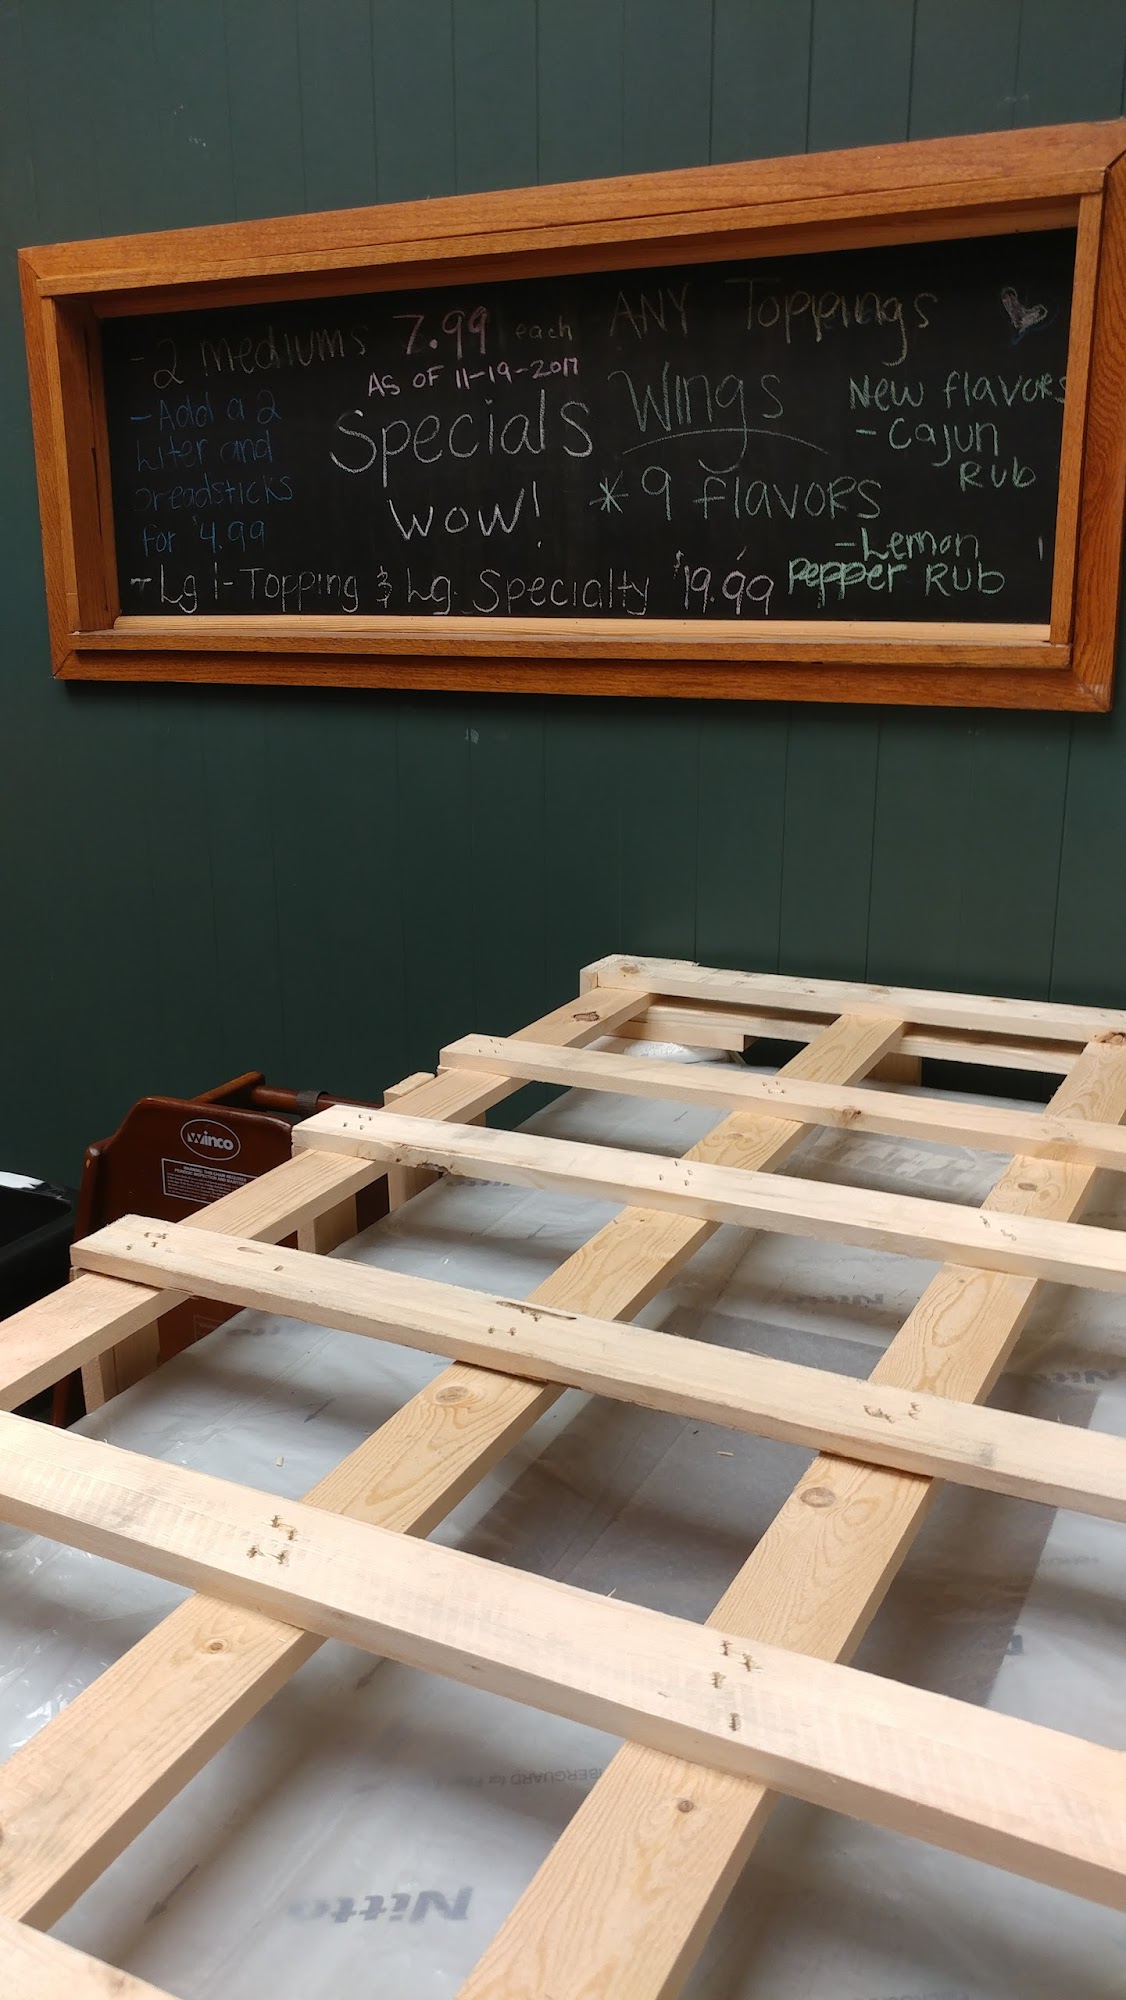 - 2 mediums 7.99 each ANY Toppings
AS OF 11-19-2017
- Add a 2
Liter and
breadsticks
for $4.99
Specials
WOW!
Wings
* 9 flavors
New flavors
- Cajun
Rub
- Lemon
Pepper Rub
- Lg 1-Topping & Lg. Specialty $19.99
Winco
Nitto
Nitto
Nitto